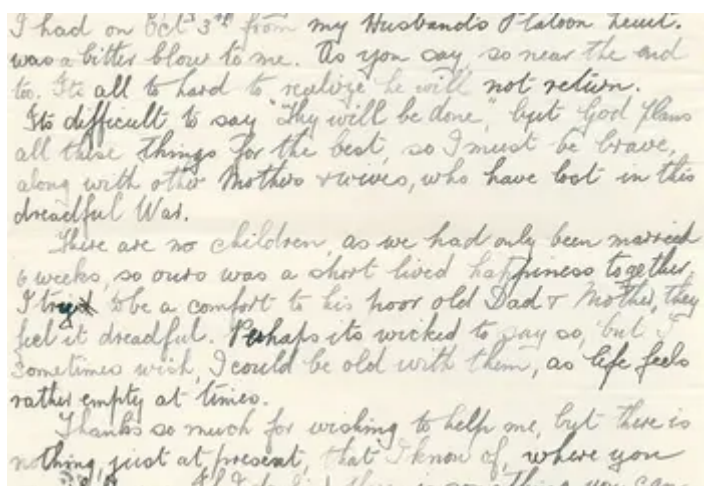 I had on Oct 3rd from my Husband's Platoon Lieut.
was a bitter blow to me. As you say, so near the end
too. Its all to hard to realize he will not return.
Its difficult to say "Thy will be done", but God plans
all these things for the best, so I must be brave,
along with other Mothers & wives, who have lost in this
dreadful War.
There are no children, as we had only been married
6 weeks, so ours was a short lived happiness together,
I try to be a comfort to his poor old Dad & Mother, they
feel it dreadful. Perhaps its wicked to say so, but I
sometimes wish, I could be old with them, as life feels
rather empty at times.
Thanks so much for wishing to help me, but there is
nothing, just at present, that I know of, where you
If I there is something you can